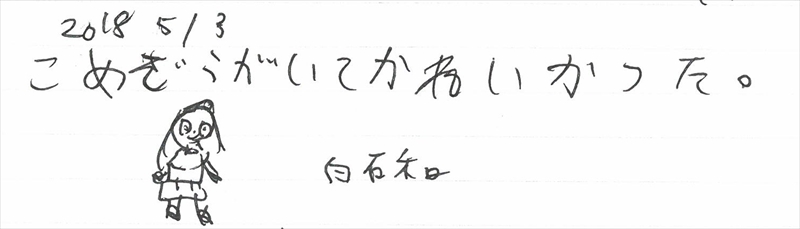 2018 5/3
こめぞうがいてかわいかった。
白石和